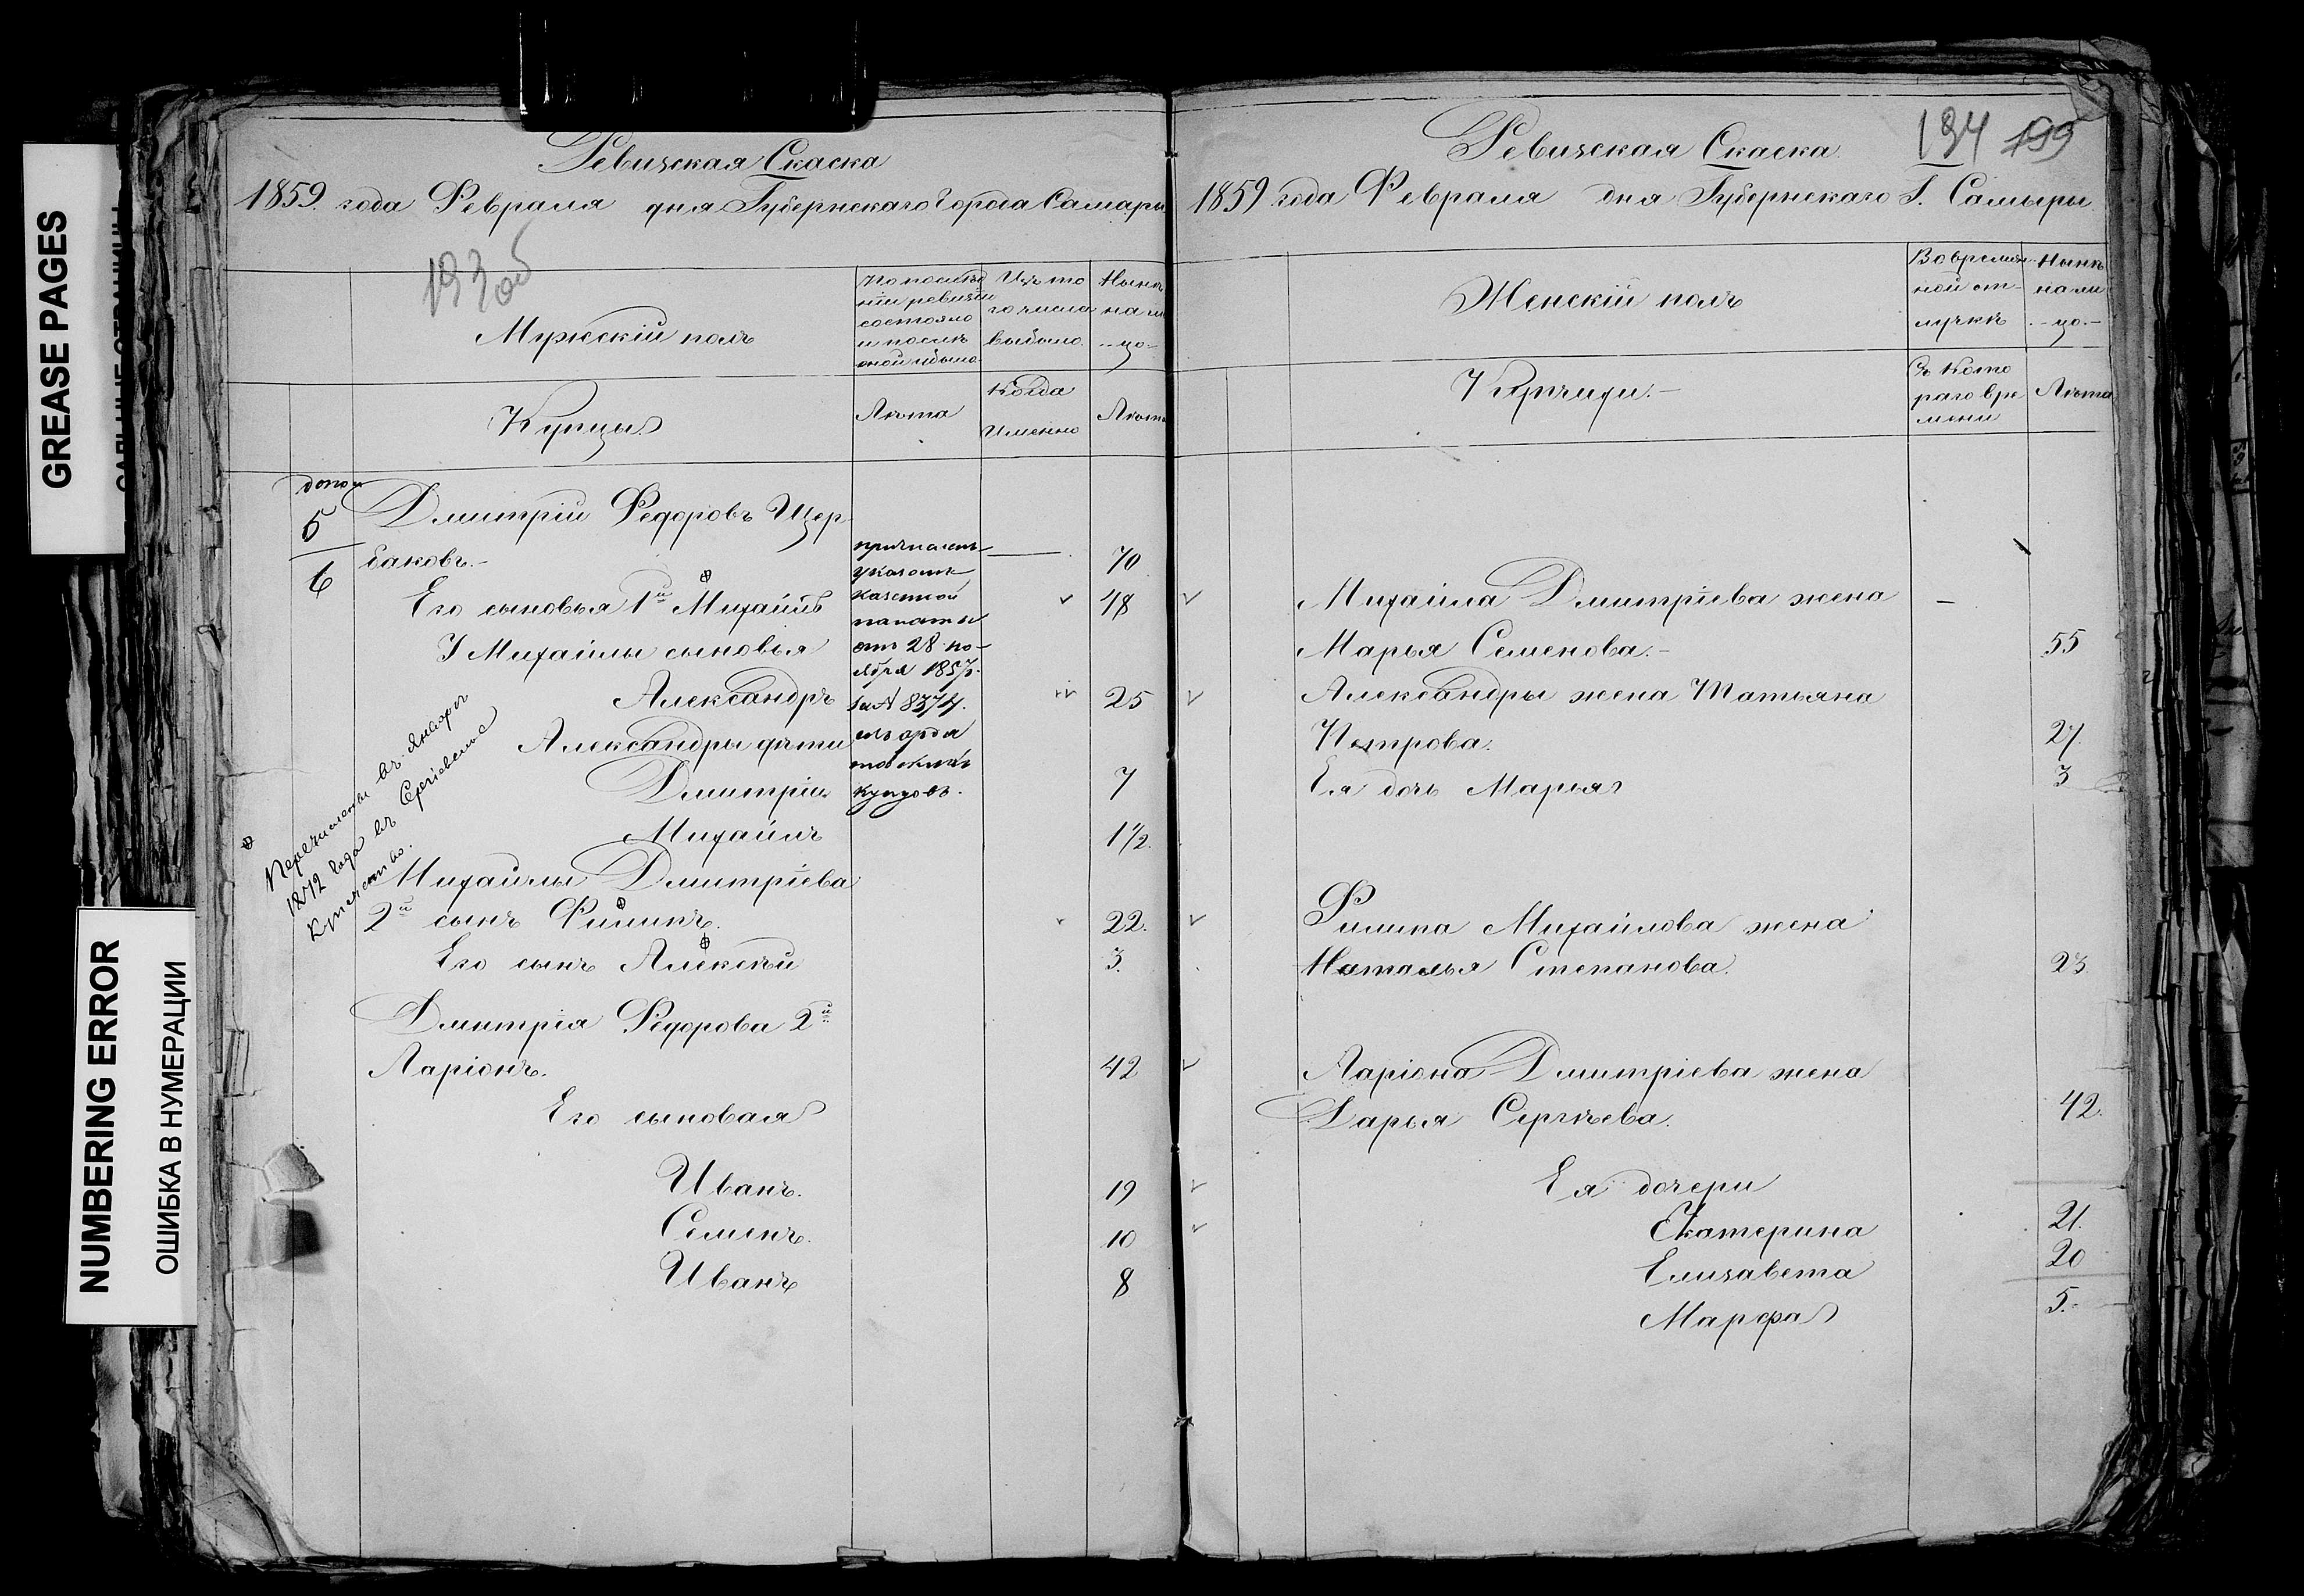 GREASE PAGES
NUMBERING ERROR
ОШИБКА В НУМЕРАЦИИ
Ревизская Скаска
1859 года Февраля дня Губернскаго Города Самары
193 об
Мужескій полъ
По послѣд
ней ревизіи
состояло
и послѣ
оной прибыло
Изъ то
го числа
выбыло.
Нынѣ
на ли
цо
Купцы
Лѣта
Когда
Именно
Лѣта
5
6
Дмитрій Федоровъ Щер
баковъ.
70
причислен
указомъ
казенной
палаты
отъ 28 но-
ября 1857
за № 8374.
купцовъ.
Его сыновья 1й Михаилъ
48
У Михайлы сыновья
Александръ
25
Александры дѣти
Дмитрій
7
Михайлъ
1½.
Перечислены въ январѣ
1872 года въ Сергіевское
Купечество.
Михайлы Дмитріева
2й сынъ Филипъ.
22.
Его сынъ Алексѣй
3.
Дмитрія Федорова 2й
Ларіонъ.
42
Его сыновая
Иванъ.
19
Семенъ.
10
Иванъ
8
Ревизская Скаска
194 195
1859 года Февраля дня Губернскаго Г. Самыры
Женскій полъ
Во времян
ной от-
лучкѣ
Нынѣ
на ли
-цо.-
Купчихи.-
Съ Кото
раго вре
мени
Лѣта
Михайла Дмитріева жена
Марья Семенова.-
55
Александры жена Татьяна
Петрова.
27.
Ея дочь Марья
3
Филипа Михайлова жена
Наталья Степанова.
23.
Ларіона Дмитріева жена
Дарья Сергѣева.
42.
Ея дочери
Екатерина
21.
Елизавета
20
Марфа
5.